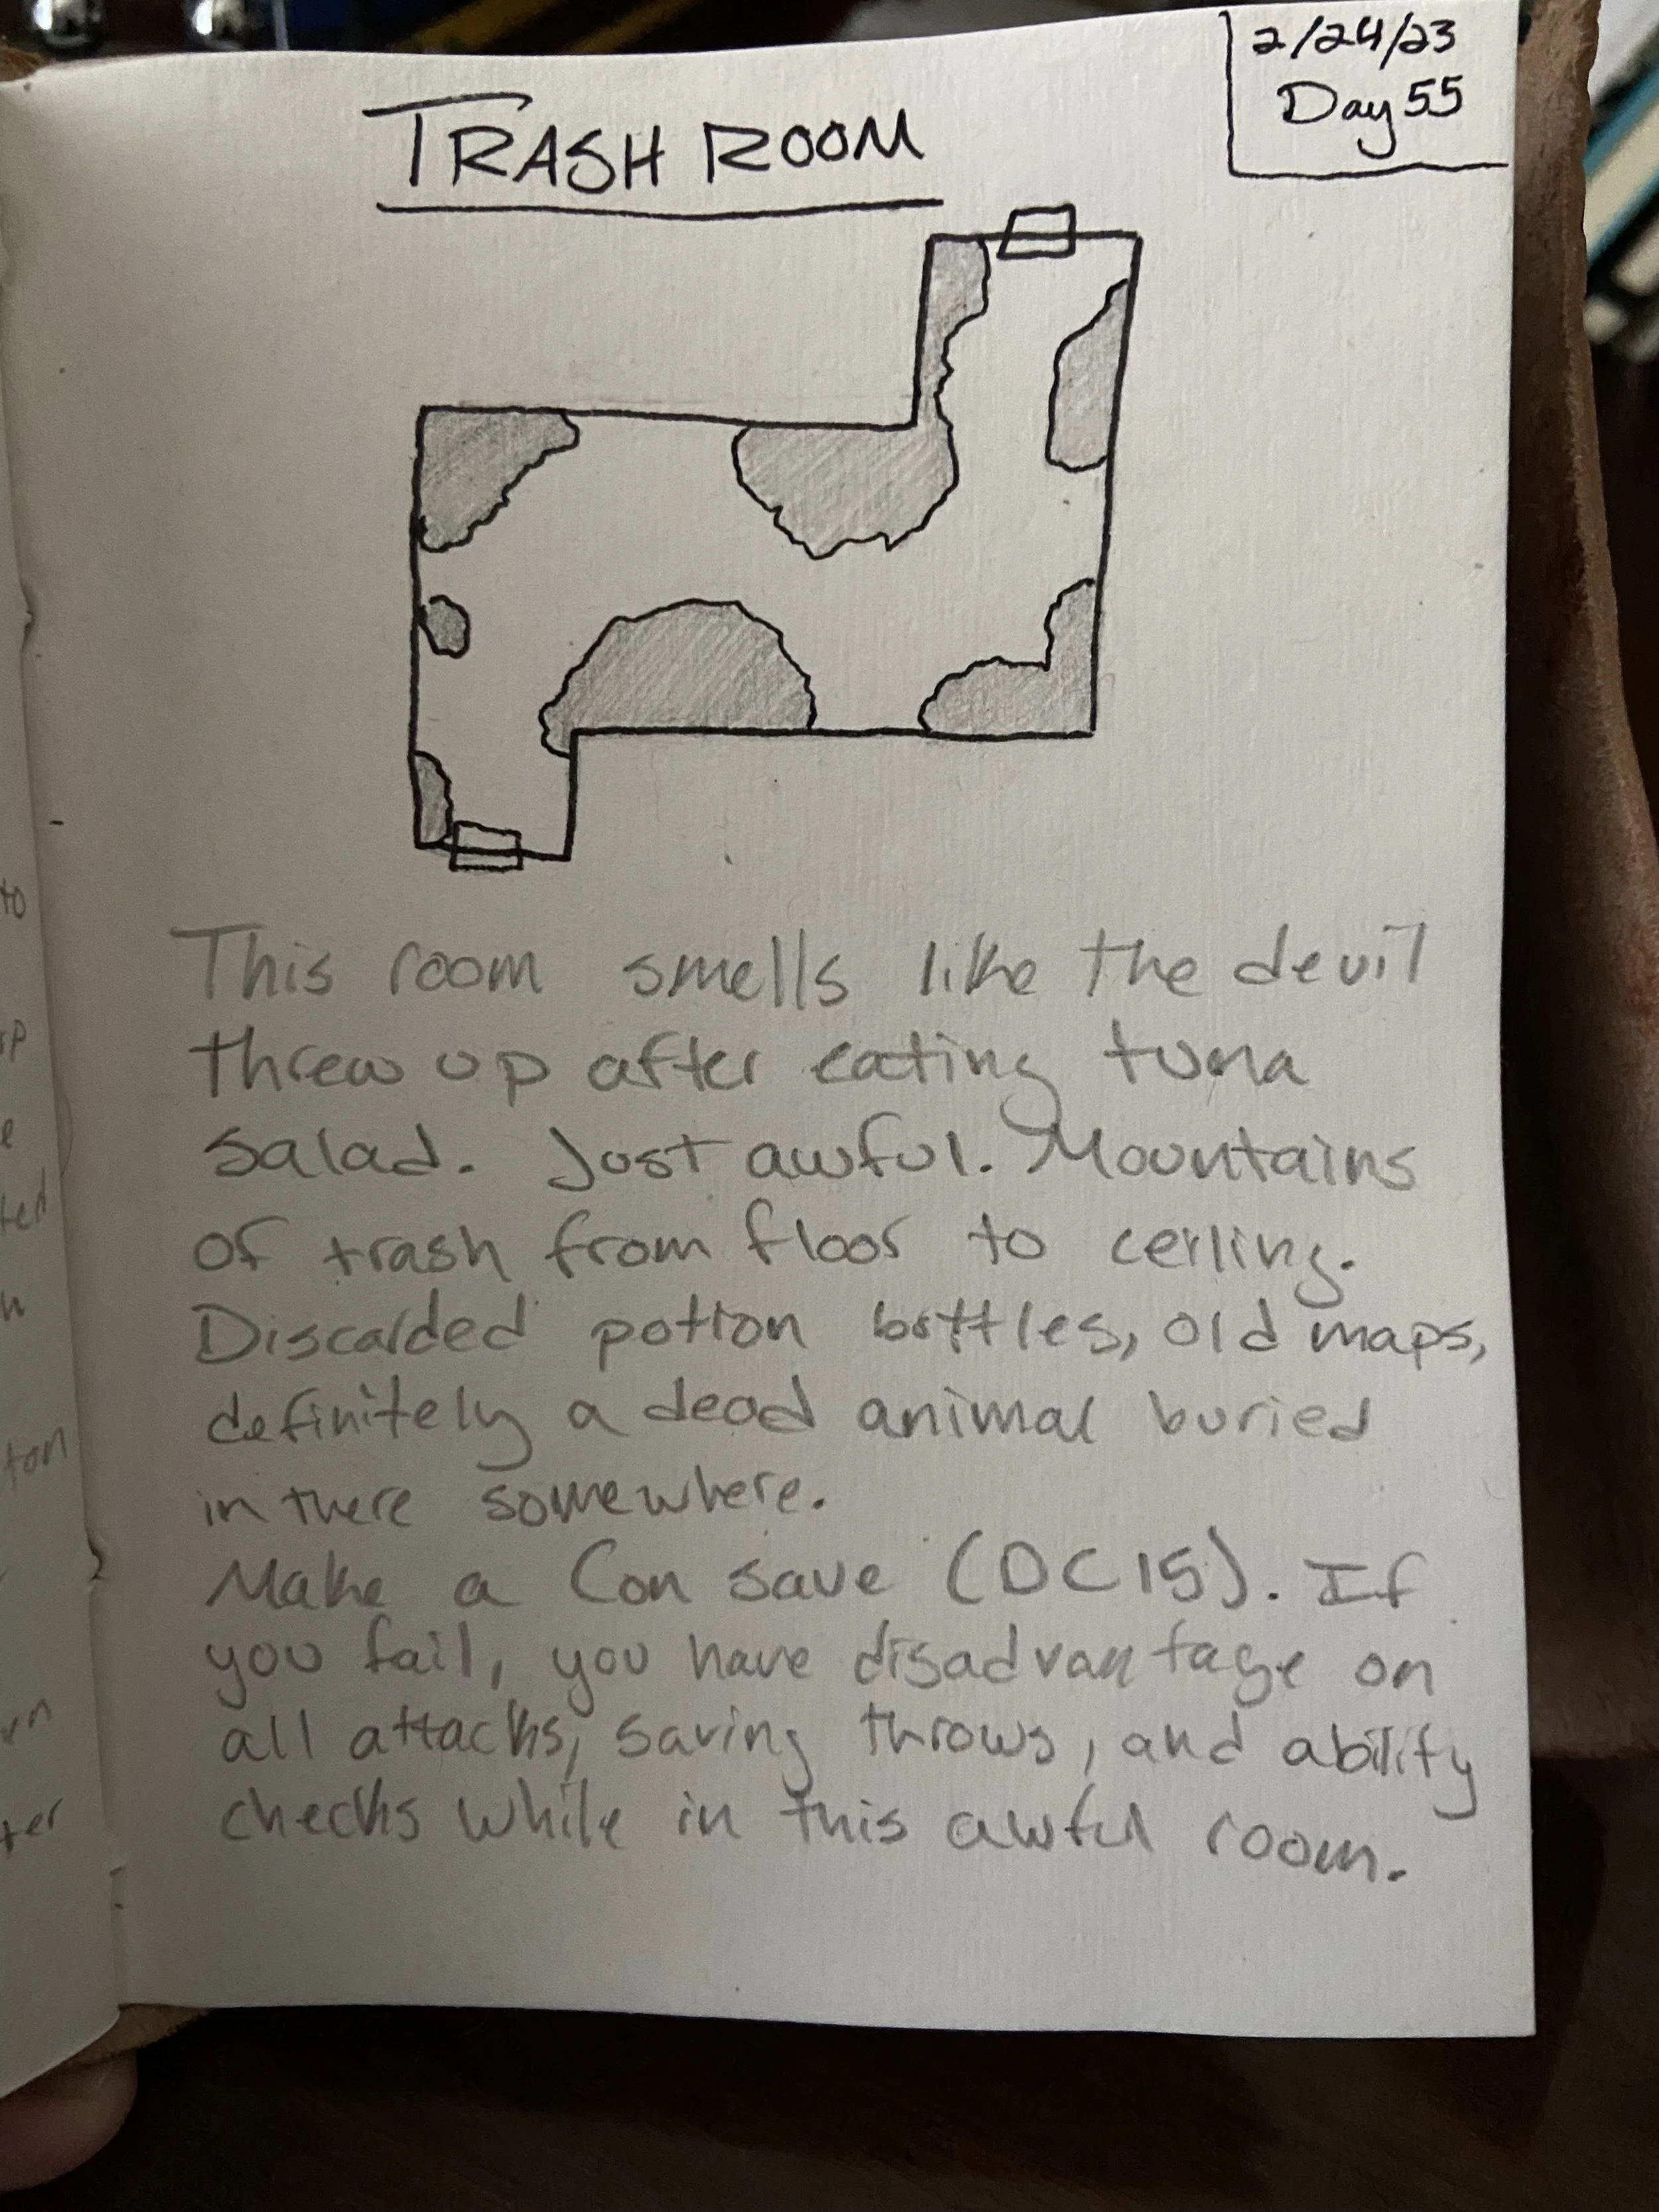 2/24/23
Day 55
TRASH ROOM
This room smells like the devil
threw up after eating tuna
salad. Just awful. Mountains
of trash from floor to ceiling.
Discarded potion bottles, old maps,
definitely a dead animal buried
in there somewhere.
Make a Con save (DC 15). If
you fail, you have disadvantage on
all attacks, saving throws, and ability
checks while in this awful room.